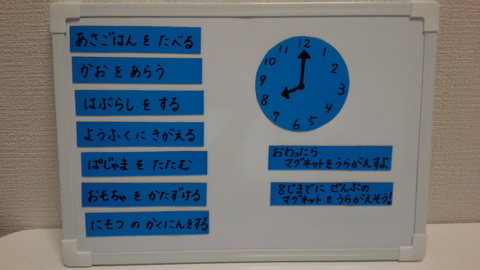 あさごはん を たべる
かお を あらう
はぶらし を する
ようふく に きがえる
ぱじゃま を たたむ
おもちゃ を かたずける
にもつ の かくにんをする
12
1
2
3
4
5
6
7
8
9
10
11
おわったら
マグネットをうらがえすよ
8じまでに ぜんぶの
マグネットを うらがえそう!